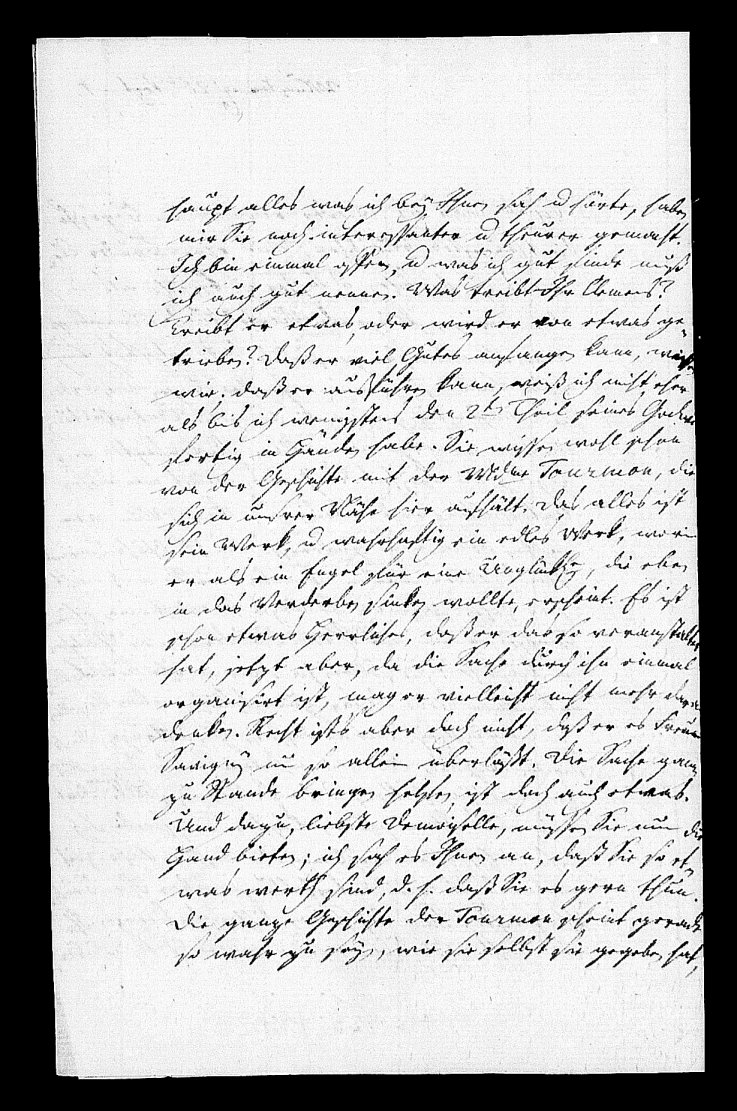 haupt alles was ich bey Ihnen sah u hörte, haben
mir Sie noch interessanter u theurer gemacht.
Ich bin einmal offen, u was ich gut finde muß
ich auch gut nennen. Was treibt Ihr Clemens?
treibt er etwas, oder wird er von etwas ge
trieben? Daß er viel Gutes anfangen kann, wissen
wir. daß er ausführen kann, weiß ich nicht eher
als bis ich wenigstens den 2t Theil seines Godwi
fertig in Händen habe. Sie wissen wohl schon
von der Geschichte mit der Mdme Tourmon, die
sich in unsrer Nähe hier aufhält. Das alles ist
sein Werk, u wahrhaftig ein edles Werk, worin
er als ein Engel für eine Unglückl, die eben
in das Verderben sinken wollte, erscheint. Es ist
schon etwas Herrliches, daß er das so veranstaltet
hat, jetzt aber, da die Sache durch ihn einmal
organisirt ist, mag er vielleicht nicht mehr daran
denken. Recht ists aber doch nicht, daß er es Freund
Savigny nu so allein überläßt. Die Sache ganz
zu Stande bringen helfen ist doch auch etwas.
Und dazu, liebste Demoiselle, müssen Sie nun die
Hand bieten; ich sah es Ihnen an, daß Sie so et
was werth sind, d. h. daß Sie es gern thun.
Die ganze Geschichte der Tourmon scheint gerade
so wahr zu seyn, wie sie selbst sie gegeben hat,